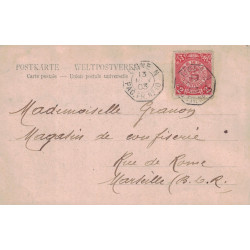 POSTKARTE — WELTPOSTVEREIN
Carte postale — Union postale universelle
13
03
Mademoiselle Granon
Magasin de confiserie
Rue de Rome
Marseille (B.d.R.